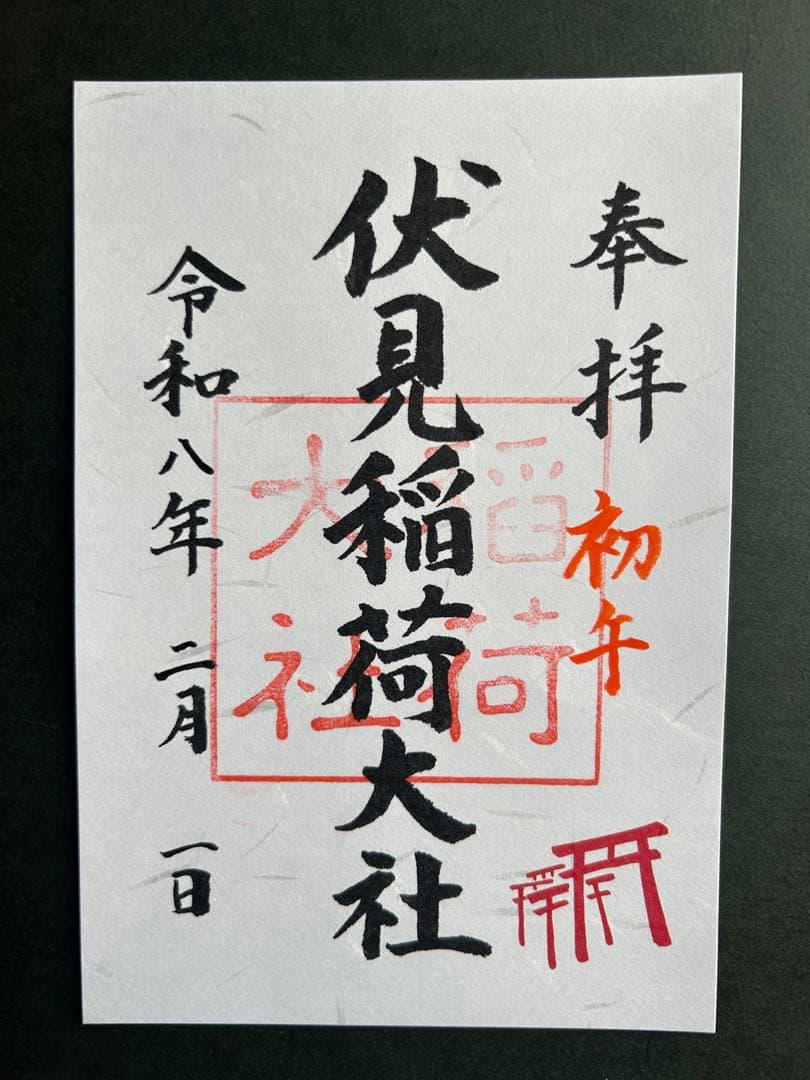 奉拝
初午
伏見稲荷大社
稲荷
大社
令和八年 二月 一日